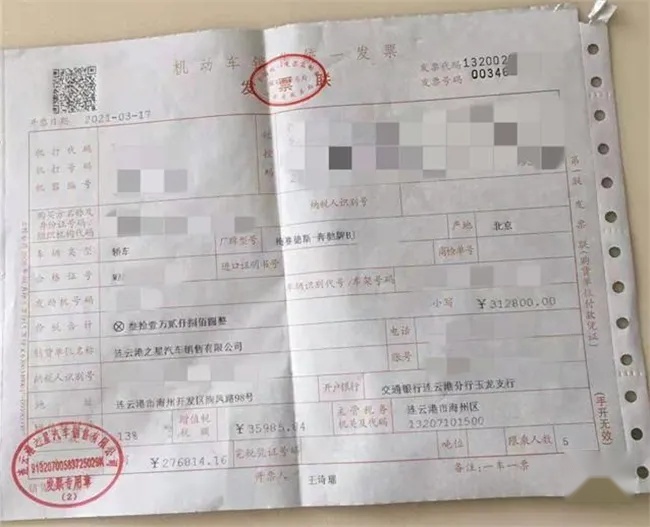 机动车销售统一发票
发票联
发票代码 132002
发票号码 0034
开票日期 2021-03-17
机打代码
机打号码
机器编号
纳税人识别号
购买方名称及
身份证号码/
组织机构代码
车辆类型 轿车 厂牌型号 梅赛德斯-奔驰牌BJ 产地 北京
合格证号 进口证明书号 商检单号
发动机号码 车辆识别代号/车架号码
价税合计 ⊗叁拾壹万贰仟捌佰圆整 小写 ¥312800.00
销货单位名称 连云港之星汽车销售有限公司 电话
纳税人识别号 账号
地址 连云港市海州开发区 98号 开户银行 交通银行连云港分行玉龙支行
13% 增值税税额 ¥35985.84 主管税务机关及代码 连云港市海州区 13207101500
¥276814.16 完税凭证号码 吨位 限乘人数 5
开票人 王诗 备注:一车一票
第一联 发票联(购货单位付款凭证)
(手开无效)
连云港之星汽车销售有限公司
发票专用章
(2)